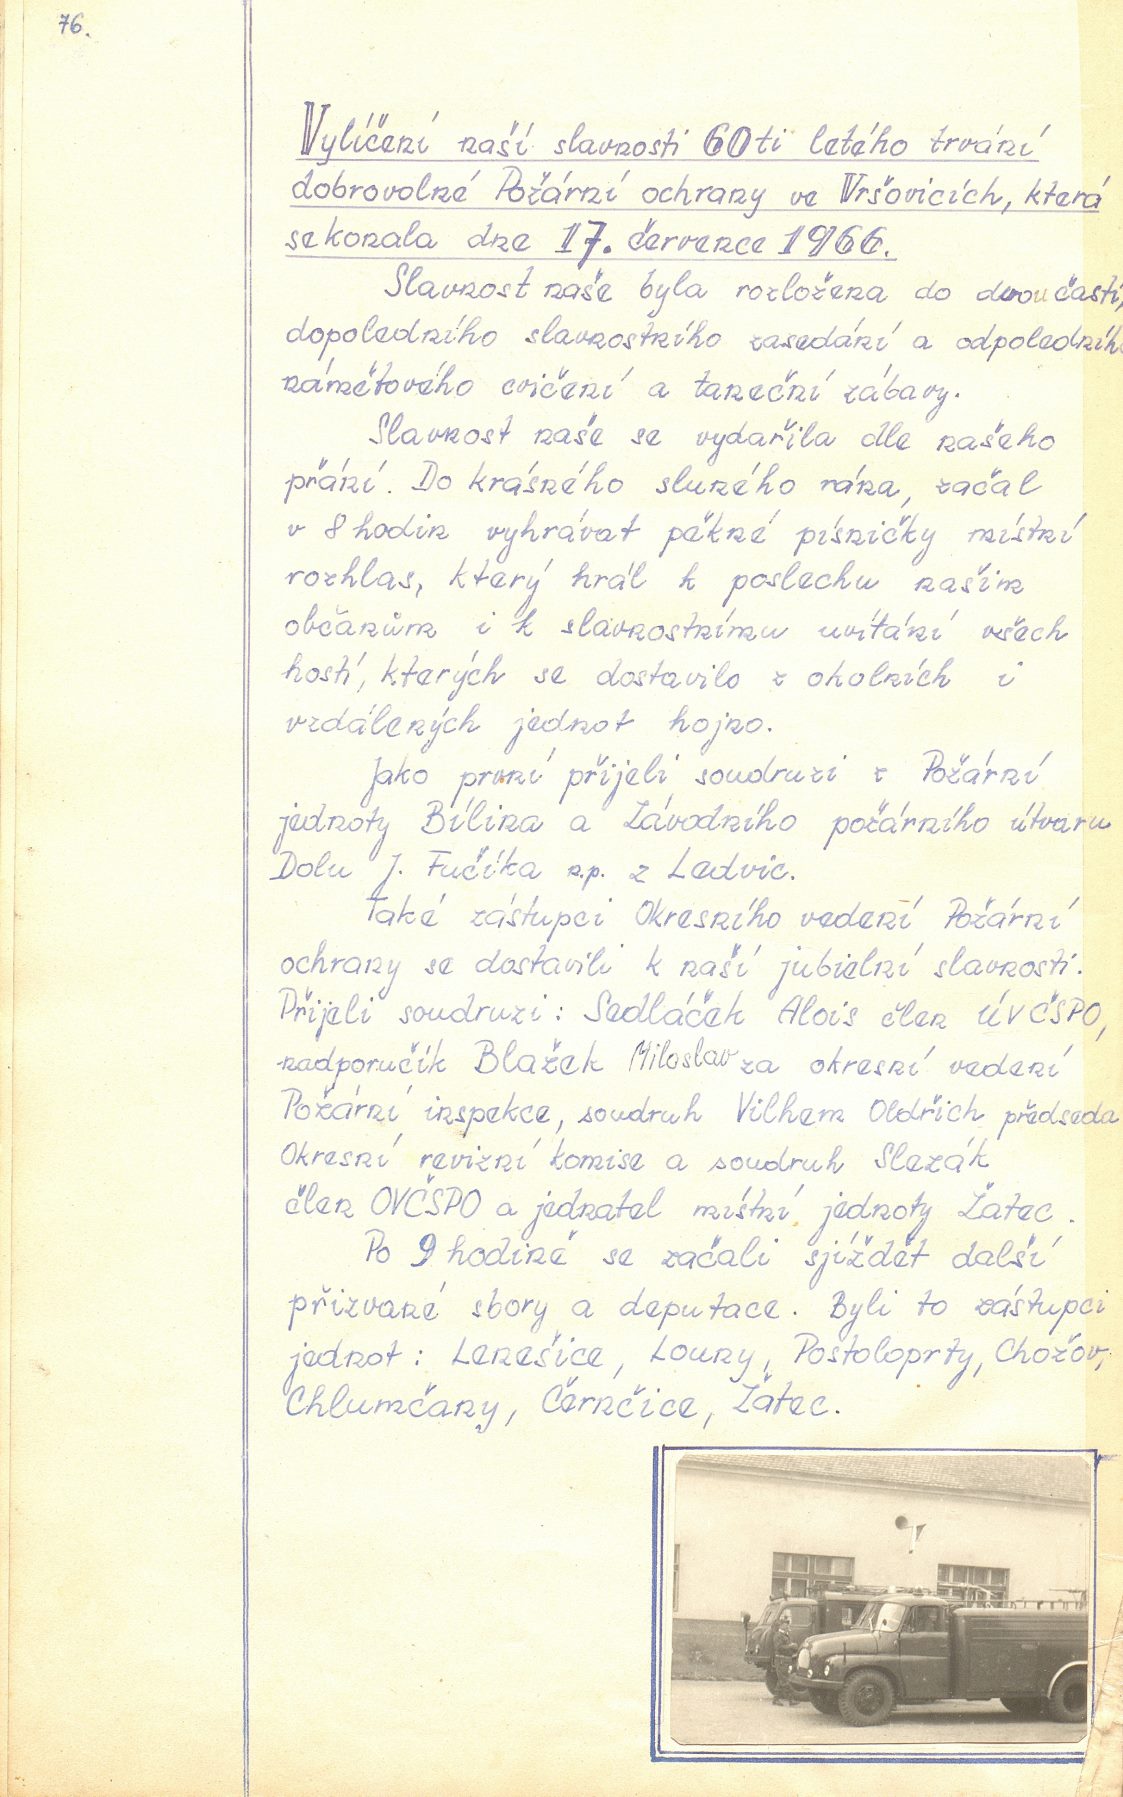 76.
Vylíčení naší slavnosti 60ti letého trvání
dobrovolné Požární ochrany ve Vršovicích, která
se konala dne 17. července 1966.
Slavnost naše byla rozložena do dvou částí,
dopoledního slavnostního zasedání a odpoledního
námětového cvičení a taneční zábavy.
Slavnost naše se vydařila dle našeho
přání. Do krásného sluného rána, začal
v 8 hodin vyhrávat pěkné písničky místní
rozhlas, který hrál k poslechu našim
občanům i k slavnostnímu uvítání všech
hostí, kterých se dostavilo z okolních i
vzdálených jednot hojno.
Jako první přijeli soudruzi z Požární
jednoty Bílina a Závodního požárního útvaru
Dolu J. Fučíka n.p. z Ledvic.
Také zástupci Okresního vedení Požární
ochrany se dostavili k naší jubielní slavnosti.
Přijeli soudruzi: Sedláček Alois člen ÚVČSPO,
nadporučík Blažek Miloslav za okresní vedení
Požární inspekce, soudruh Vilhem Oldřich předseda
Okresní revizní komise a soudruh Slezák
člen OVČSPO a jednatel místní jednoty Žatec.
Po 9 hodině se začali sjíždět další
přizvané sbory a deputace. Byli to zástupci
jednot: Lenešice, Louny, Postoloprty, Chožov,
Chlumčany, Černčice, Žatec.